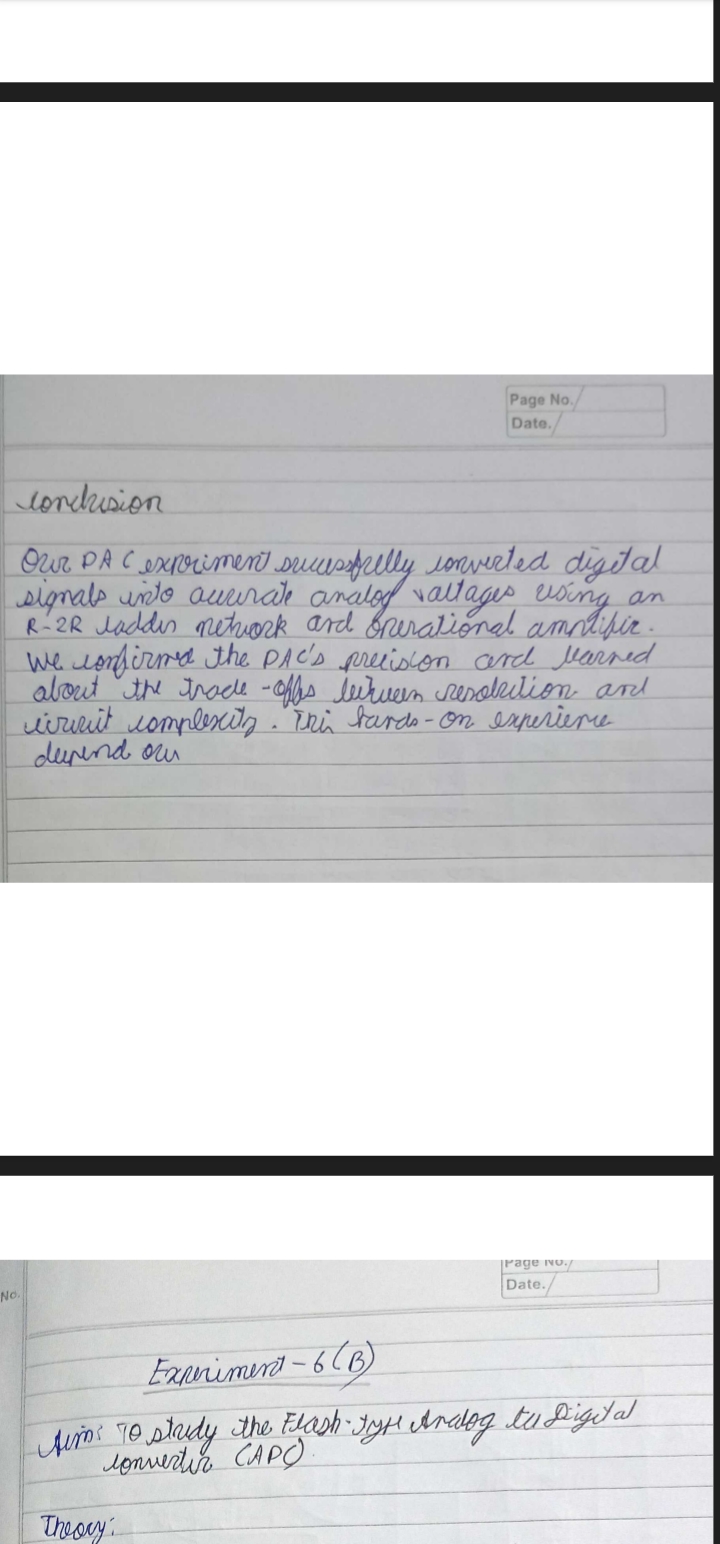 Page No.
Date.
Conclusion
Our DAC experiment successfully converted digital
signals into accurate analog voltages using an
R-2R ladder network and operational amplifier.
We confirmed the DAC's precision and learned
about the trade-offs between resolution and
circuit complexity. This hands-on experience
deepend our
Page No.
No.
Date.
Experiment-6(B)
Aim: To study the Flash-type Analog to Digital
converter (ADC).
Theory: